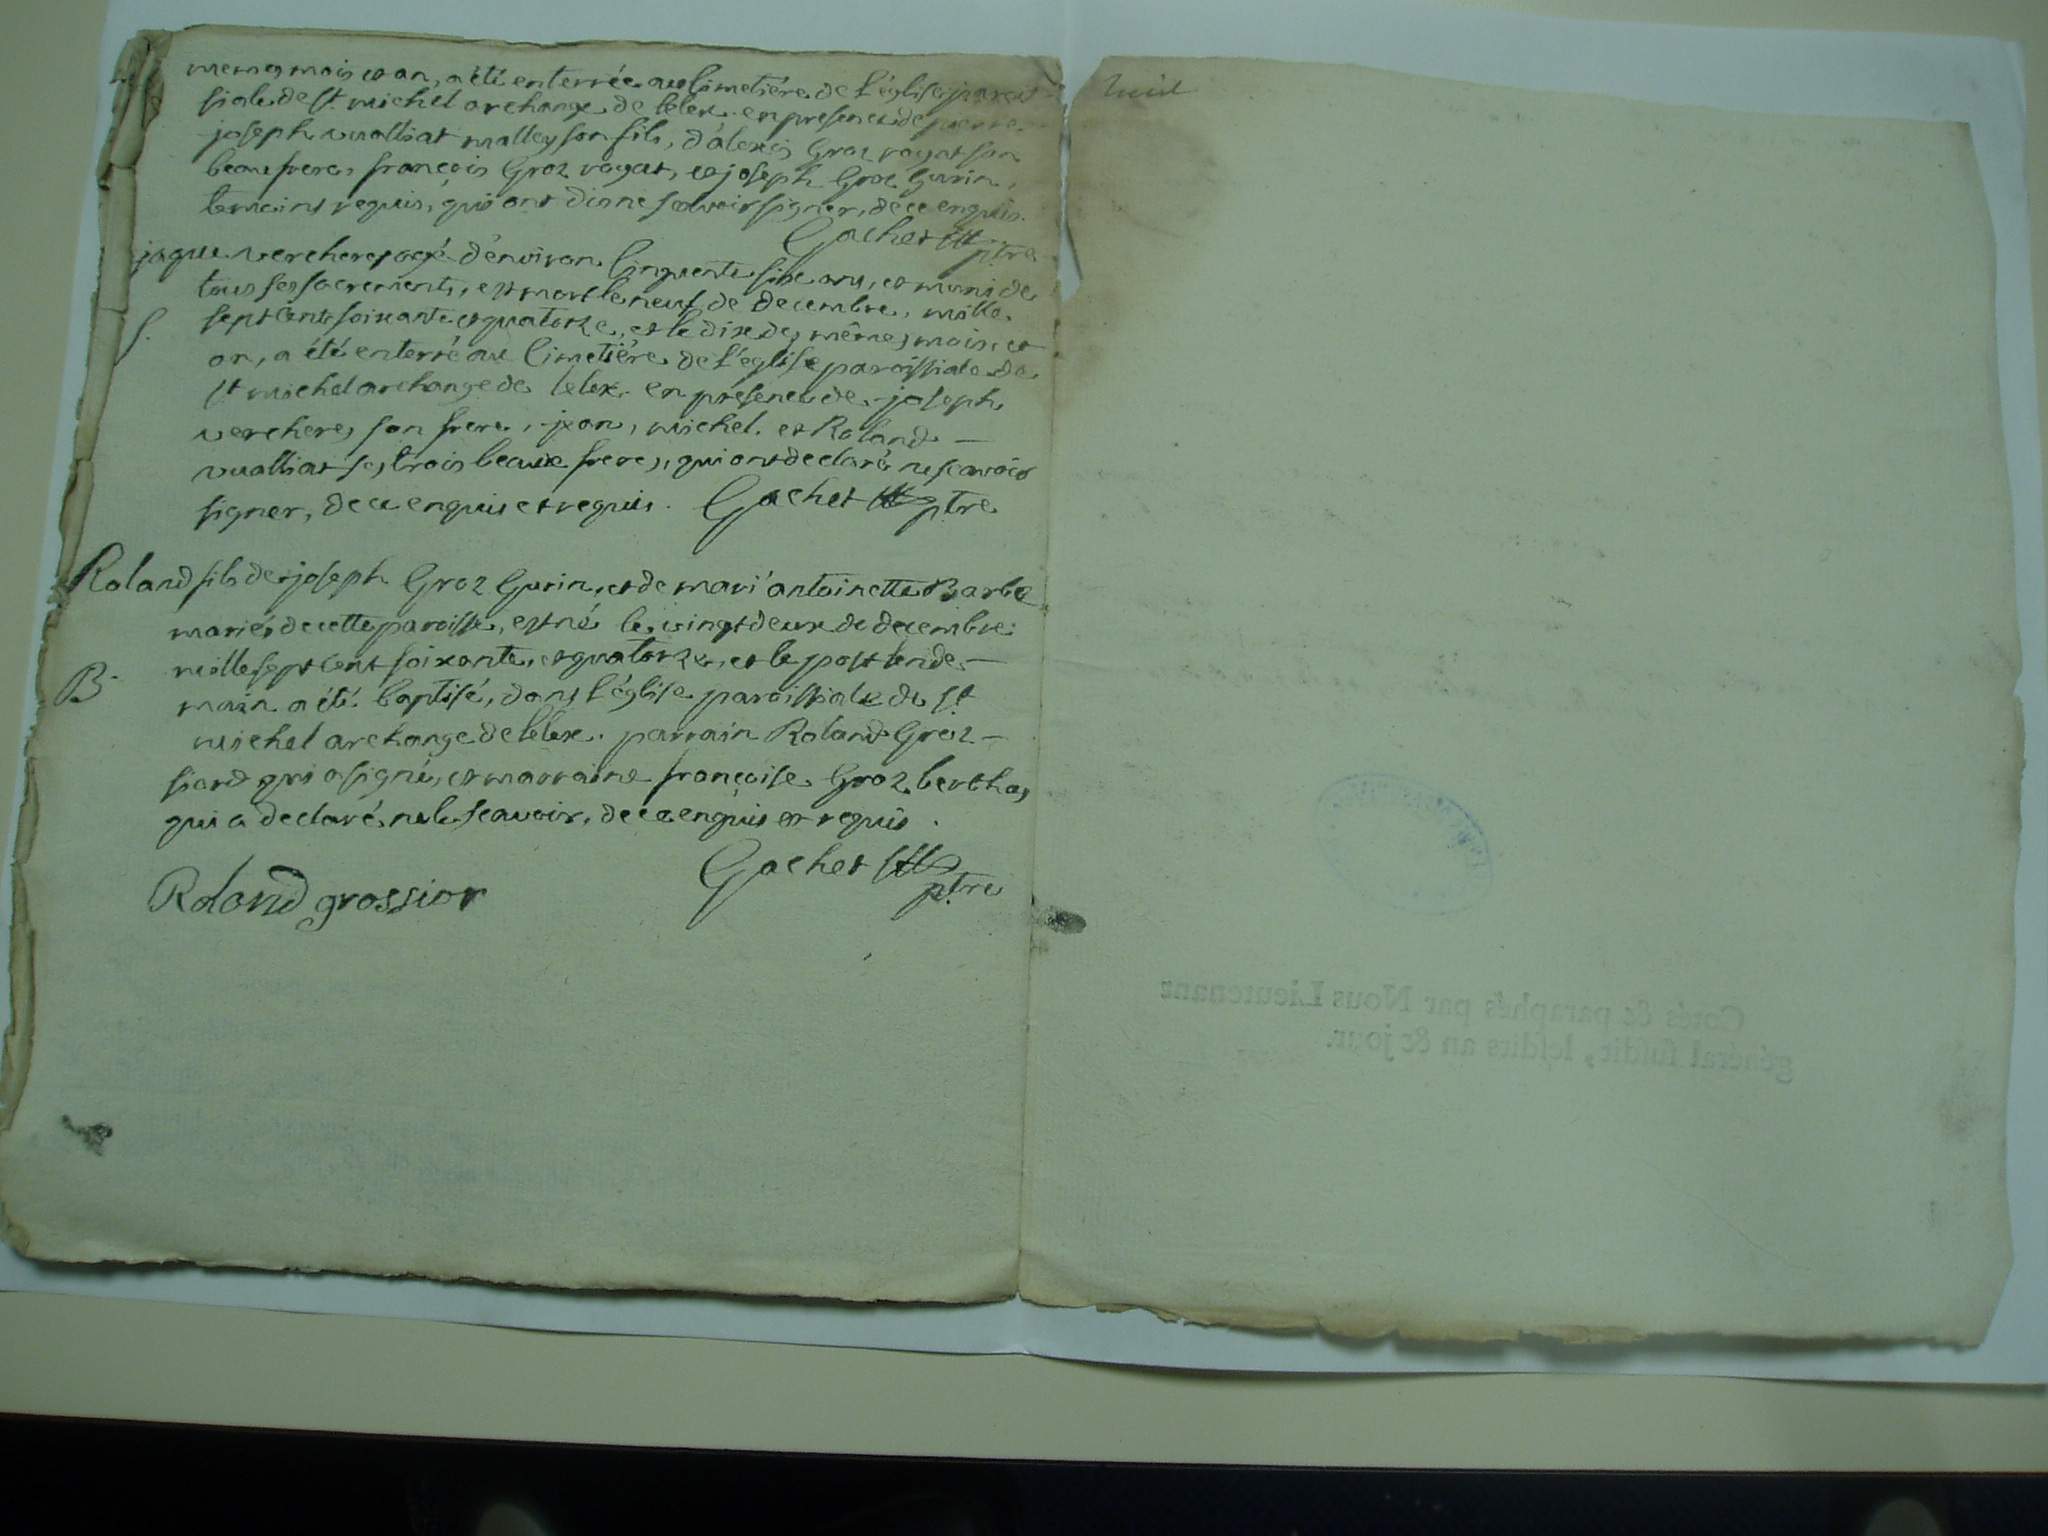 memes mois et an, a été enterrée au Cimetiére de l'église parois
siale de st. michel archange de lelex. en presence de pierre
joseph vualliat malley son fils, d'alexis Groz royat son
beau frere, françois Groz royat, et joseph Groz Gurin,
temoins requis, qui ont dis ne scavoir signer, de ce enquis.
Gachet ptre
jaque verchere, agé d'environ Cinquante six ans, et muni de
tous ses sacrements, est mort le neuf de decembre, mille
sept cent soixante et quatorze, et le dix des mêmes mois, et
S.
an, a été enterré au Cimetiére de l'église paroissiale de
st michel archange de lelex. en présence de joseph
verchere, son frere, jean, michel. et Roland —
vualliat ses trois beaux freres, qui ont declaré ne scavoir
signer, de ce enquis et requis. Gachet ptre
Roland fils de joseph Groz Gurin, et de mari'antoinette Barbe
mariés de cette paroisse, est né le vingt deux de decembre
mille sept cent soixante, et quatorze, et le post lende —
B.
main a été baptisé, dans l'église paroissiale de st
michel archange de lelex. parrain Roland Groz —
siord qui a signé, et marraine françoise Groz berthas,
qui a declaré ne le scavoir, de ce enquis et requis.
Gachet ptre
Roland grossior
huit
Cotés & paraphés par Nous Lieutenant
général susdit, lesdits an & jour.